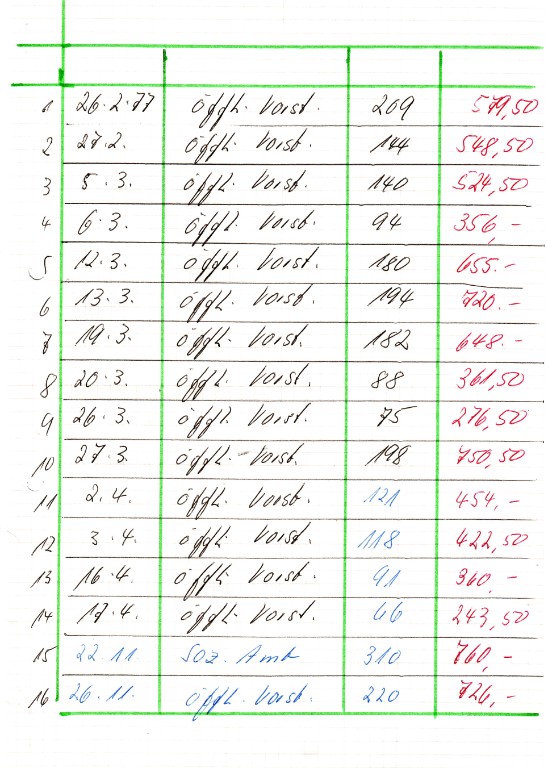 1 26.2.77 öfftl. Vorst. 209 579,50
2 27.2. öfftl. Vorst. 144 548,50
3 5.3. öfftl. Vorst. 140 524,50
4 6.3. öfftl. Vorst. 94 356,-
5 12.3. öfftl. Vorst. 180 655.-
6 13.3. öfftl. Vorst. 194 720.-
7 19.3. öfftl. Vorst. 182 648.-
8 20.3. öfftl. Vorst. 88 361,50
9 26.3. öfftl. Vorst. 75 276,50
10 27.3. öfftl. Vorst. 198 750,50
11 2.4. öfftl. Vorst. 121 454,-
12 3.4. öfftl. Vorst. 118 422,50
13 16.4. öfftl. Vorst. 91 360,-
14 17.4. öfftl. Vorst. 66 243,50
15 22.11 Soz. Amt 310 760,-
16 26.11. öfftl. Vorst. 220 726,-